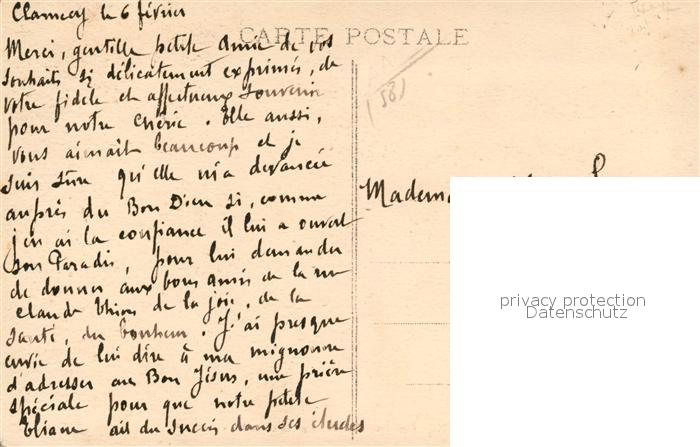 Clamecy le 6 février
CARTE POSTALE
Merci, gentille petite amie de vos
souhaits si délicatement exprimés, de
votre fidèle et affectueux souvenir
pour notre chérie. Elle aussi,
vous aimait beaucoup et je
suis sûre qu'elle m'a devancée
auprès du Bon Dieu si, comme
j'en ai la confiance il lui a ouvert
son Paradis, pour lui demander
de donner aux bons amis de la rue
Claude de la joie, de la
santé, du bonheur. J'ai presque
envie de lui dire à ma mignonne
d'adresser au Bon Jésus, une prière
spéciale pour que notre petite
Éliane ait du succès dans ses études
(58)
privacy protection
Datenschutz